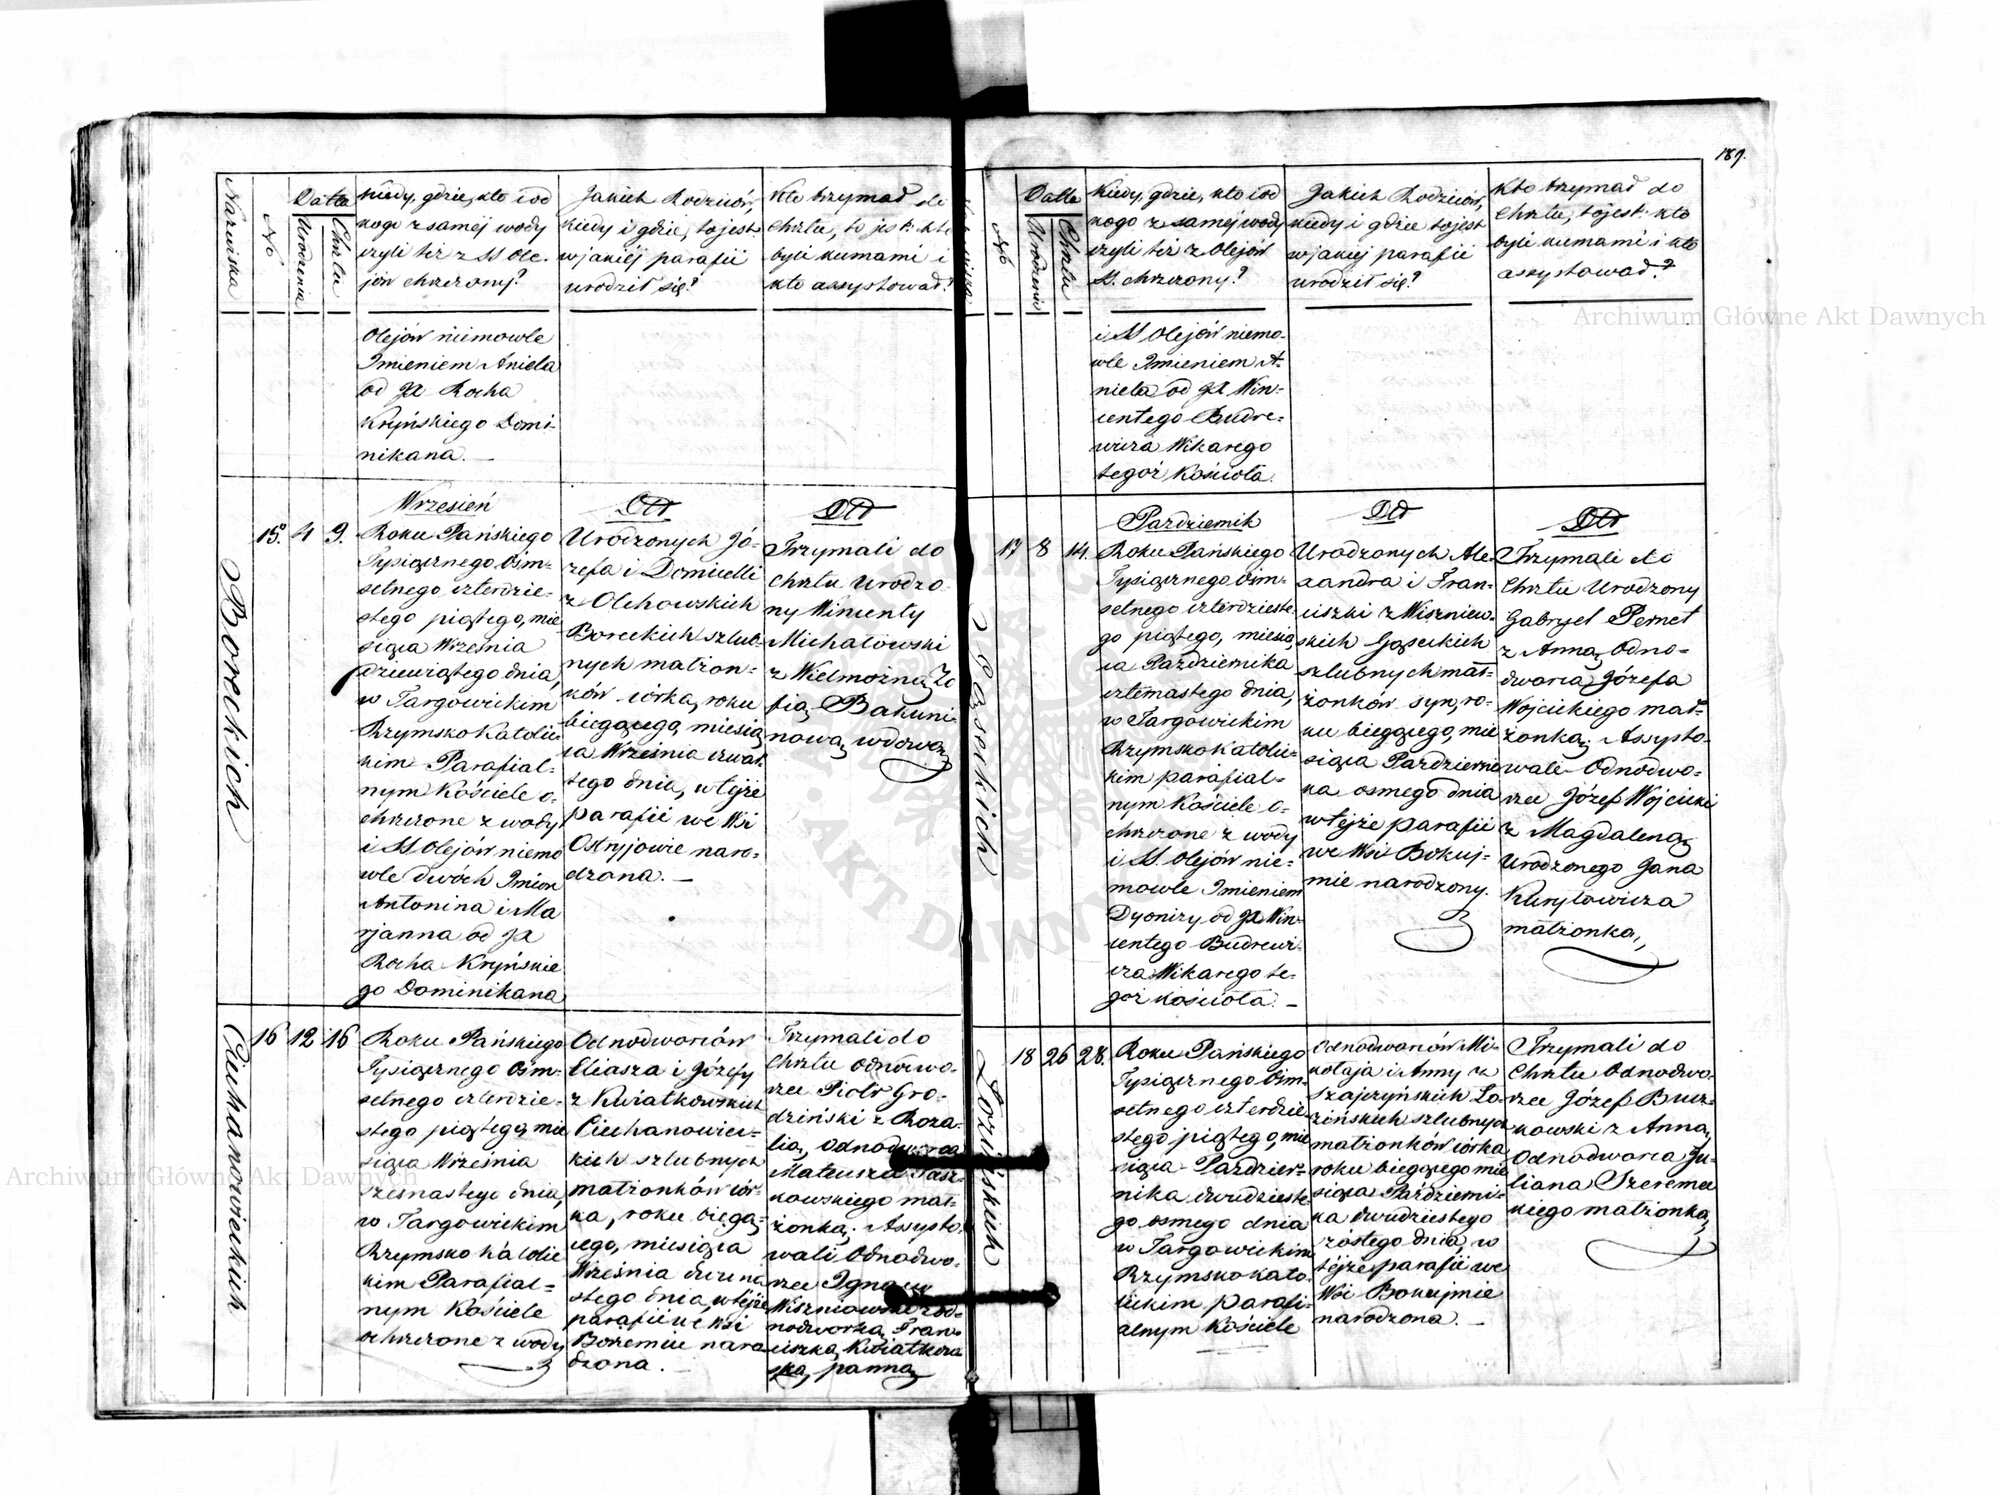 189.
Nazwiska
No
Datta
Urodzenia
Chrztu
Kiedy, gdzie, kto i od
kogo z samej wody
czyli też z SS Ole-
jów chrzczony?
Jakich Rodziców,
kiedy i gdzie, to jest
w jakiéj parafii
urodził się?
Kto trzymał do
chrztu, to jest: kto
byli kumami i
kto assystował?
Olejów niemowle
Imieniem Aniela
od JX Rocha
Kryńskiego Domi-
nikana. —
Boreckich
15.
4
9.
Wrzesień
Roku Pańskiego
Tysiącznego Ośm-
setnego czterdzie-
stego piątego, mie
siąca Września
dziewiątego dnia,
w Targowickim
Rzymsko Katolic
kim Parafial-
nym Kościele o-
chrzczone z wody
i SS Olejów niemo
wle dwóch Imion
Antonina i Ma
rjanna od JX
Rocha Kryńskie
go Dominikana
Dtd
Urodzonych Jó-
zefa i Domicelli
z Olchowskich
Boreckich szlub-
nych małżon-
ków córka, roku
bieżącego, miesią
ca Września czwar-
tego dnia, w tejże
parafii we Wsi
Ostryjowie naro-
dzona. —
Dtd
Trzymali do
Chrztu Urodzo
ny Wincenty
Michałowski
z Wielmożną Zo
fią Bakuni
nową wdową
Ciechanowieckich
16
12
16
Roku Pańskiego
Tysiącznego Ośm-
setnego czterdzie-
stego piątego, mie
siąca Września
szesnastego dnia,
w Targowickim
Rzymsko Katolic
kim Parafial-
nym Kościele
ochrzczone z wody
Odnodworców
Eliasza i Józefy
z Kwiatkowskich
Ciechanowiec-
kich szlubnych
małżonków cór-
ka, roku bieżą-
cego, miesiąca
Września dwuna
stego dnia, w tejże
parafii we Wsi
Bożemiu naro
dzona. —
Trzymali do
Chrztu Odnodwo-
rzec Piotr Gro-
dziński z Roza-
lią, Odnodworca
Mateusza Pasz-
kowskiego mał-
żonką; Assysto-
wali Odnodwo-
rzec Ignacy
Wiszniowski z Od-
nodworką Fran-
ciszką Kwiatkow
ską, panną
Nazwiska
No
Datta
Urodzenia
Chrztu
Kiedy, gdzie, kto i od
kogo z samej wody
czyli też z Olejów
SS. chrzczony?
Jakich Rodziców,
kiedy i gdzie to jest
w jakiej parafii
urodził się?
Kto trzymał do
chrztu, to jest: kto
byli kumami i kto
assystował?
i SS Olejów niemo-
wle Imieniem A-
niela od JX Win-
centego Budre-
wicza Wikarego
tegoż Kościoła.
Gąseckich
17
8
14.
Październik
Roku Pańskiego
Tysiącznego Ośm-
setnego czterdzieste-
go piątego, miesią
ca Października
czternastego dnia,
w Targowickim
Rzymsko Katolic-
kim parafial-
nym Kościele o-
chrzczone z wody
i SS. Olejów nie-
mowle Imieniem
Dyonizy od JX Win-
centego Budrewi-
cza Wikarego te-
goż Kościoła. —
Dtd
Urodzonych Ale-
xandra i Fran-
ciszki z Wiszniew-
skich Gąseckich
szlubnych mał-
żonków syn, ro-
ku bieżącego, mie
siąca Październi
ka osmego dnia
w tejże parafii
we Wsi Bokuj-
mie narodzony.
Dtd
Trzymali do
Chrztu Urodzony
Gabryel Pernet
z Anną, Odno-
dworca Józefa
Wojcickiego mał-
żonką; Assysto-
wali Odnodwo-
rzec Józef Wojcicki
z Magdaleną
Urodzonego Jana
Kuryłowicza
małżonką,
Łozińskich
18
26
28.
Roku Pańskiego
Tysiącznego Ośm-
setnego czterdzie-
stego piątego, mie
siąca Paździer-
nika dwudzieste-
go osmego dnia
w Targowickim
Rzymsko kato-
lickim parafi-
alnym Kościele
Odnodworców Mi-
kołaja i Anny z
Szajczyńskich Ło-
zińskich szlubnych
małżonków córka
roku bieżącego mie
siąca Październi-
ka dwudziestego
szóstego dnia, w
tejże parafii we
Wsi Bokujmie
narodzona. —
Trzymali do
Chrztu Odnodwo-
rzec Józef Bucz-
kowski z Anną,
Odnodworca Ju-
liana Szeremec
kiego małżonką
Archiwum Główne Akt Dawnych
Archiwum Główne Akt Dawnych